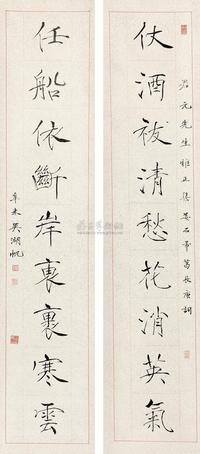 仗酒祓清愁花消英氣
君元先生雅正集姜石帚葛長庚詞
任船依斷岸褎裹寒雲
辛未吳湖帆